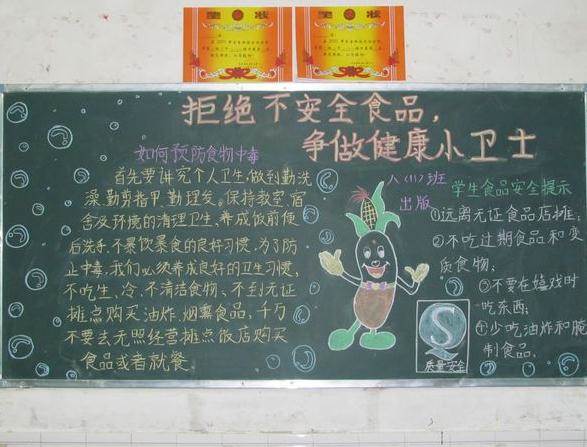 奖状
奖状
拒绝不安全食品，
争做健康小卫士
如何预防食物中毒
首先要讲究个人卫生，做到勤洗
澡、勤剪指甲、勤理发。保持教室、宿
舍及环境的清理卫生、养成饭前便
后洗手，不暴饮暴食的良好习惯，为了防
止中毒，我们必须养成良好的卫生习惯，
不吃生、冷、不清洁食物、不到无证
摊点购买油炸、烟熏食品，千万
不要去无照经营摊点饭店购买
食品或者就餐
八(11)班
出版
学生食品安全提示
①远离无证食品店摊；
②不吃过期食品和变
质食物；
③不要在嬉戏时
吃东西；
④少吃油炸和腌
制食品，
S
质量安全